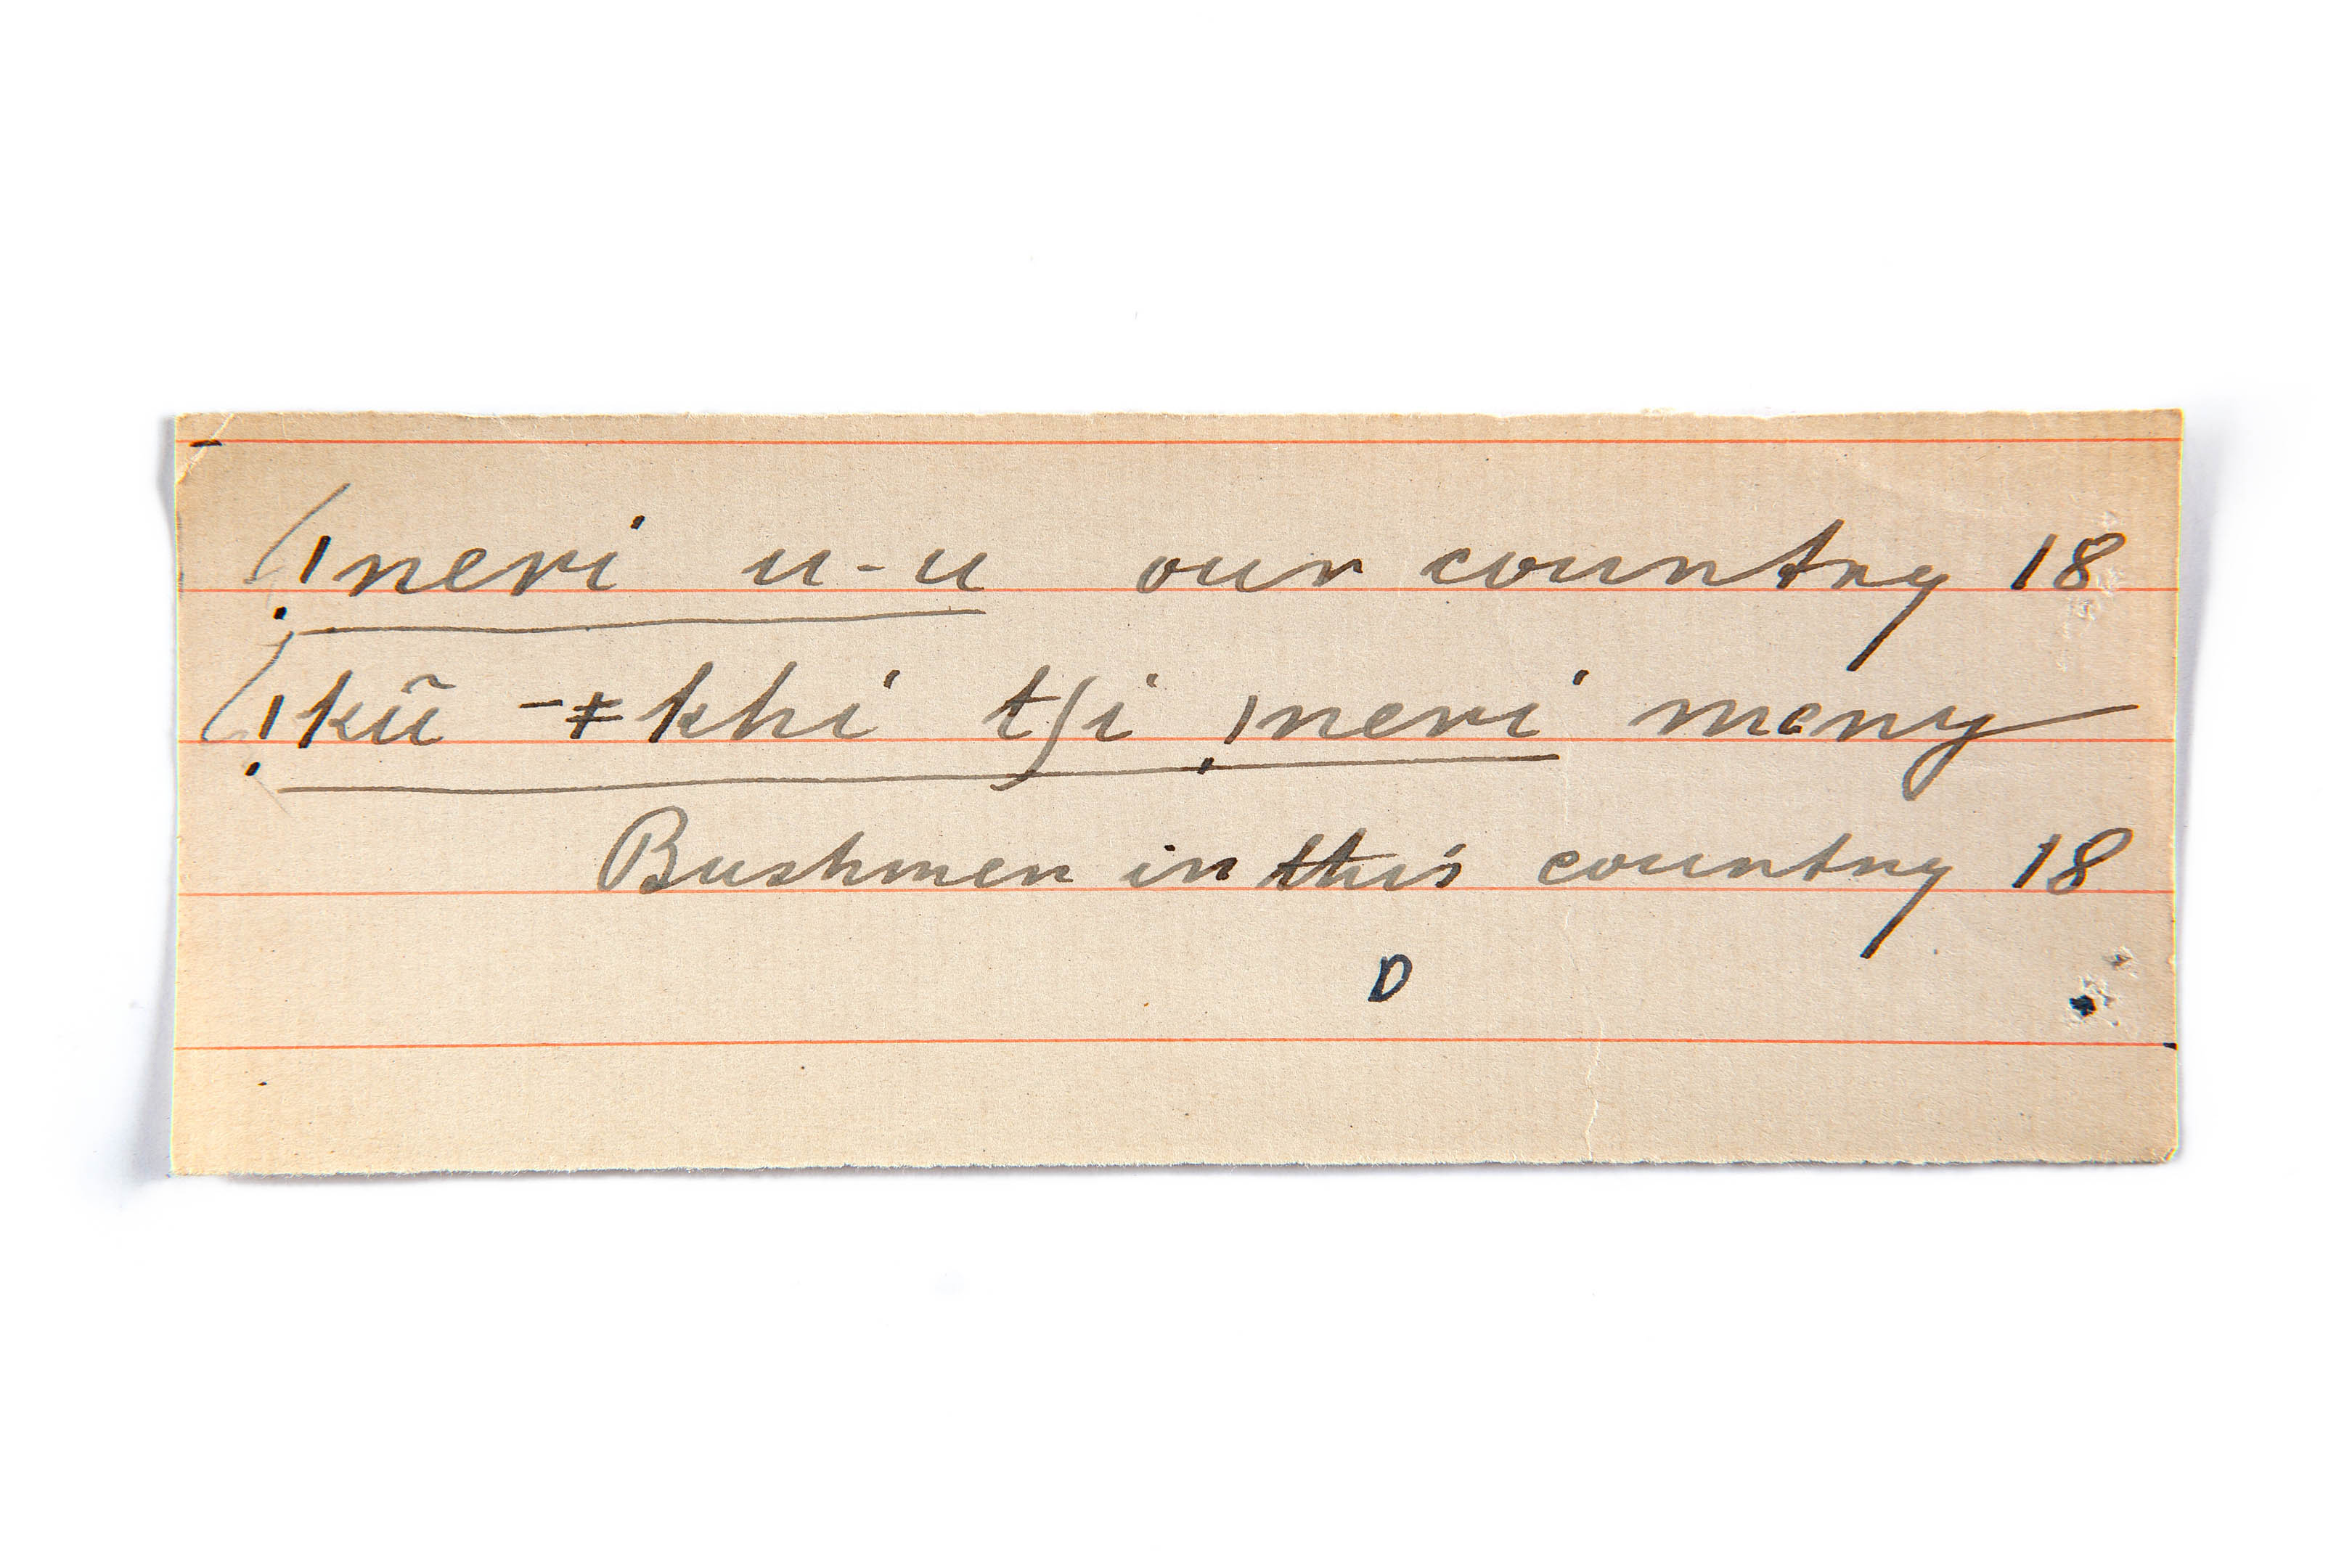 (!neri u-u our country 18
(!kũ -ǂkhi tʃi !neri many
Bushmen in this country 18
D